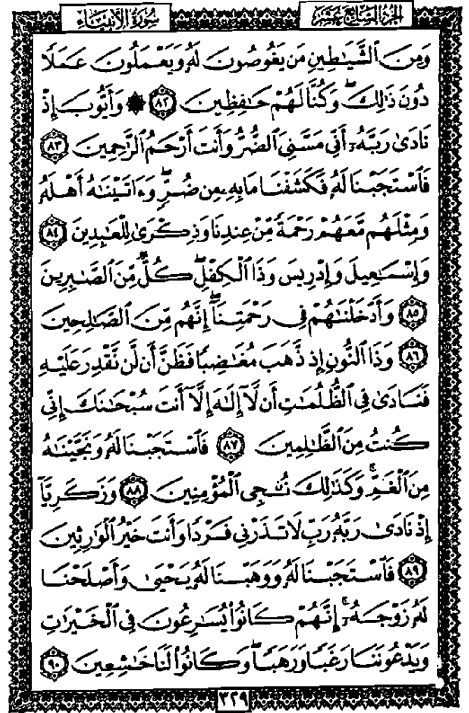 الجزء السابع عشر
سورة الأنبياء
وَمِنَ ٱلشَّيَـٰطِينِ مَن يَغُوصُونَ لَهُۥ وَيَعْمَلُونَ عَمَلًا
دُونَ ذَٰلِكَ ۖ وَكُنَّا لَهُمْ حَـٰفِظِينَ ٨٢ ۞ وَأَيُّوبَ إِذْ
نَادَىٰ رَبَّهُۥٓ أَنِّي مَسَّنِيَ ٱلضُّرُّ وَأَنتَ أَرْحَمُ ٱلرَّٰحِمِينَ ٨٣
فَٱسْتَجَبْنَا لَهُۥ فَكَشَفْنَا مَا بِهِۦ مِن ضُرٍّ ۖ وَءَاتَيْنَـٰهُ أَهْلَهُۥ
وَمِثْلَهُم مَّعَهُمْ رَحْمَةً مِّنْ عِندِنَا وَذِكْرَىٰ لِلْعَـٰبِدِينَ ٨٤
وَإِسْمَـٰعِيلَ وَإِدْرِيسَ وَذَا ٱلْكِفْلِ ۖ كُلٌّ مِّنَ ٱلصَّـٰبِرِينَ
٨٥ وَأَدْخَلْنَـٰهُمْ فِي رَحْمَتِنَآ ۖ إِنَّهُم مِّنَ ٱلصَّـٰلِحِينَ
٨٦ وَذَا ٱلنُّونِ إِذ ذَّهَبَ مُغَـٰضِبًا فَظَنَّ أَن لَّن نَّقْدِرَ عَلَيْهِ
فَنَادَىٰ فِي ٱلظُّلُمَـٰتِ أَن لَّآ إِلَـٰهَ إِلَّآ أَنتَ سُبْحَـٰنَكَ إِنِّي
كُنتُ مِنَ ٱلظَّـٰلِمِينَ ٨٧ فَٱسْتَجَبْنَا لَهُۥ وَنَجَّيْنَـٰهُ
مِنَ ٱلْغَمِّ ۚ وَكَذَٰلِكَ نُـۨجِي ٱلْمُؤْمِنِينَ ٨٨ وَزَكَرِيَّآ
إِذْ نَادَىٰ رَبَّهُۥ رَبِّ لَا تَذَرْنِي فَرْدًا وَأَنتَ خَيْرُ ٱلْوَٰرِثِينَ
٨٩ فَٱسْتَجَبْنَا لَهُۥ وَوَهَبْنَا لَهُۥ يَحْيَىٰ وَأَصْلَحْنَا
لَهُۥ زَوْجَهُۥٓ ۚ إِنَّهُمْ كَانُوا۟ يُسَـٰرِعُونَ فِي ٱلْخَيْرَٰتِ
وَيَدْعُونَنَا رَغَبًا وَرَهَبًا ۖ وَكَانُوا۟ لَنَا خَـٰشِعِينَ ٩٠
٣٢٩